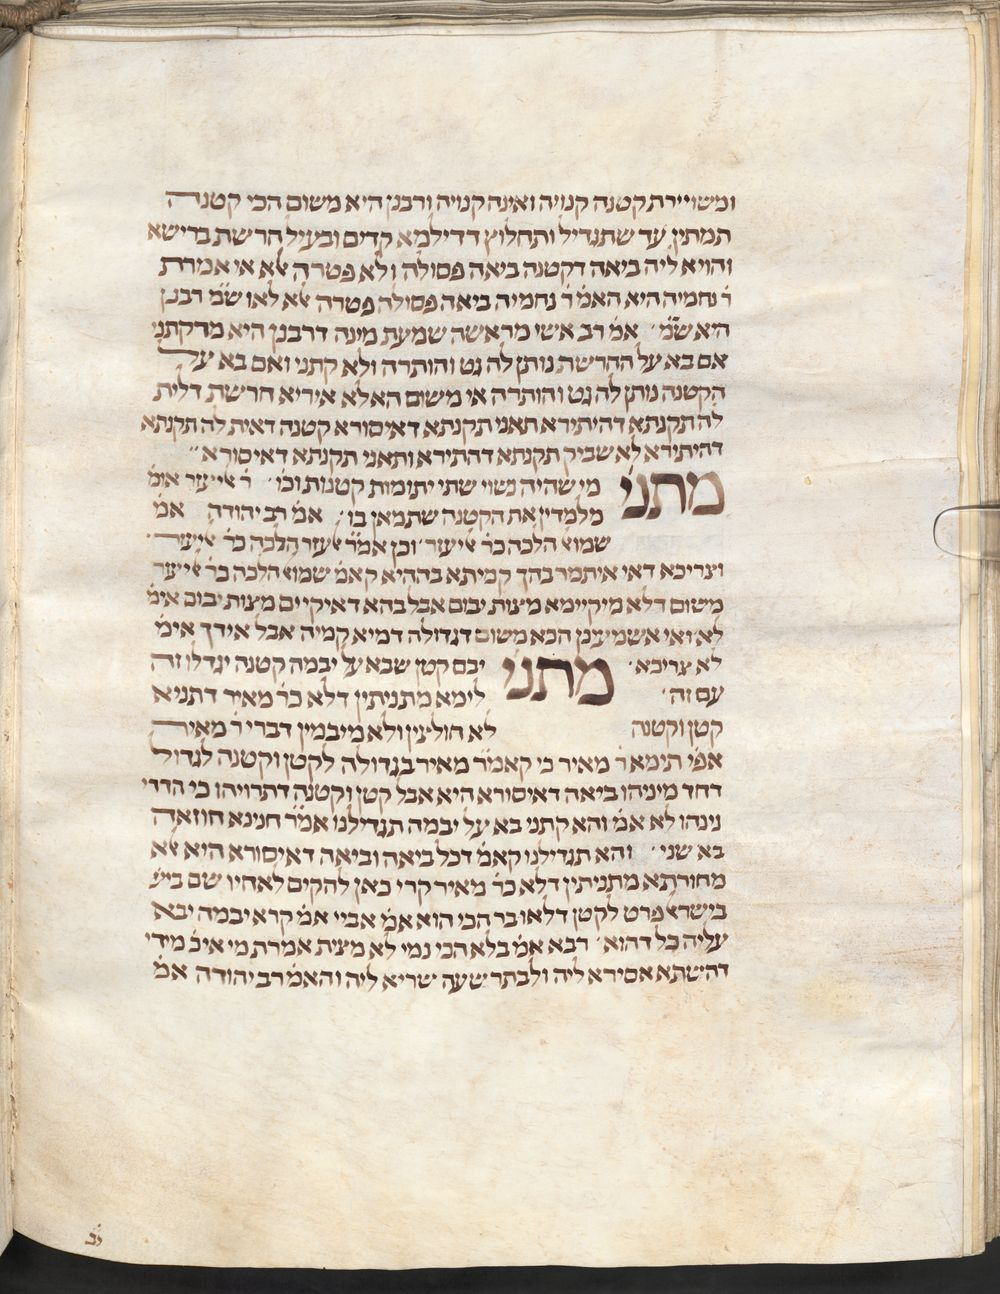 ומשויירת קטנה קנויה ואינה קנויה ורבנן היא משום הכי קטנה
תמתין עד שתגדיל ותחלוץ דדילמא קדים ובעיל חרשת ברישא
והויא ליה ביאה דקטנה ביאה פסולה ולא פטרה אלא אי אמרת
ר׳ נחמיה היא האמ׳ ר׳ נחמיה ביאה פסולה פטרה אלא לאו ש״מ רבנן
היא ש״מ׳ אמ׳ רב אשי מראשה שמעת מינה דרבנן היא מדקתני
אם בא על החרשת נותן לה גט והותרה ולא קתני ואם בא על
הקטנה נותן לה גט והותרה אי משום הא לא איריא חרשת דלית
לה תקנתא דהיתירא תאני תקנתא דאיסורא קטנה דאית לה תקנתא
דהיתירא לא שביק תקנתא דהתירא ותאני תקנתא דאיסורא׳׳
מתני מי שהיה נשוי שתי יתומות קטנות וכו׳ ר׳ אליעזר אומ׳
מלמדין את הקטנה שתמאן בו׳ אמ׳ רב יהודה אמ׳
שמואל הלכה כר׳ אליעזר׳ וכן אמ״ר אלעזר הלכה כר׳ אליעזר׳
וצריכא דאי איתמר בהך קמיתא בההיא קאמ׳ שמואל הלכה כר׳ אליעזר
משום דלא מיקיימא מצות יבום אבל בהא דאיקיים מצות יבום אימ׳
לא ואי אשמיענן הכא משום דגדולה דמיא קמיה אבל אידך אימ׳
לא צריכא׳ מתני יבם קטן שבא על יבמה קטנה יגדלו זה
עם זה׳ לימא מתניתין דלא כר׳ מאיר דתניא
קטן וקטנה לא חולצין ולא מיבמין דברי ר׳ מאיר
אפי׳ תימא ר׳ מאיר כי קאמ׳ ר׳ מאיר בגדולה לקטן וקטנה לגדול
דחד מינייהו ביאה דאיסורא היא אבל קטן וקטנה דתרויהו כי הדדי
נינהו לא אמ׳ והא קתני בא על יבמה תגדילנו אמ״ר חנינא חוזאה
בא שני׳ והא תגדילנו קאמ׳ דכל ביאה וביאה דאיסורא היא אלא
מחורתא מתניתין דלא כר׳ מאיר קרי כאן להקים לאחיו שם ביש׳
בישראל פרט לקטן דלאו בר הכי הוא אמ׳ אביי אמ׳ קרא יבמה יבא
עליה כל דהוא׳ רבא אמ׳ בלא הכי נמי לא מצית אמרת מי איכ׳ מידי
דהשתא אסירא ליה ולבתר שעה שריא ליה והאמ׳ רב יהודה אמ׳
יב